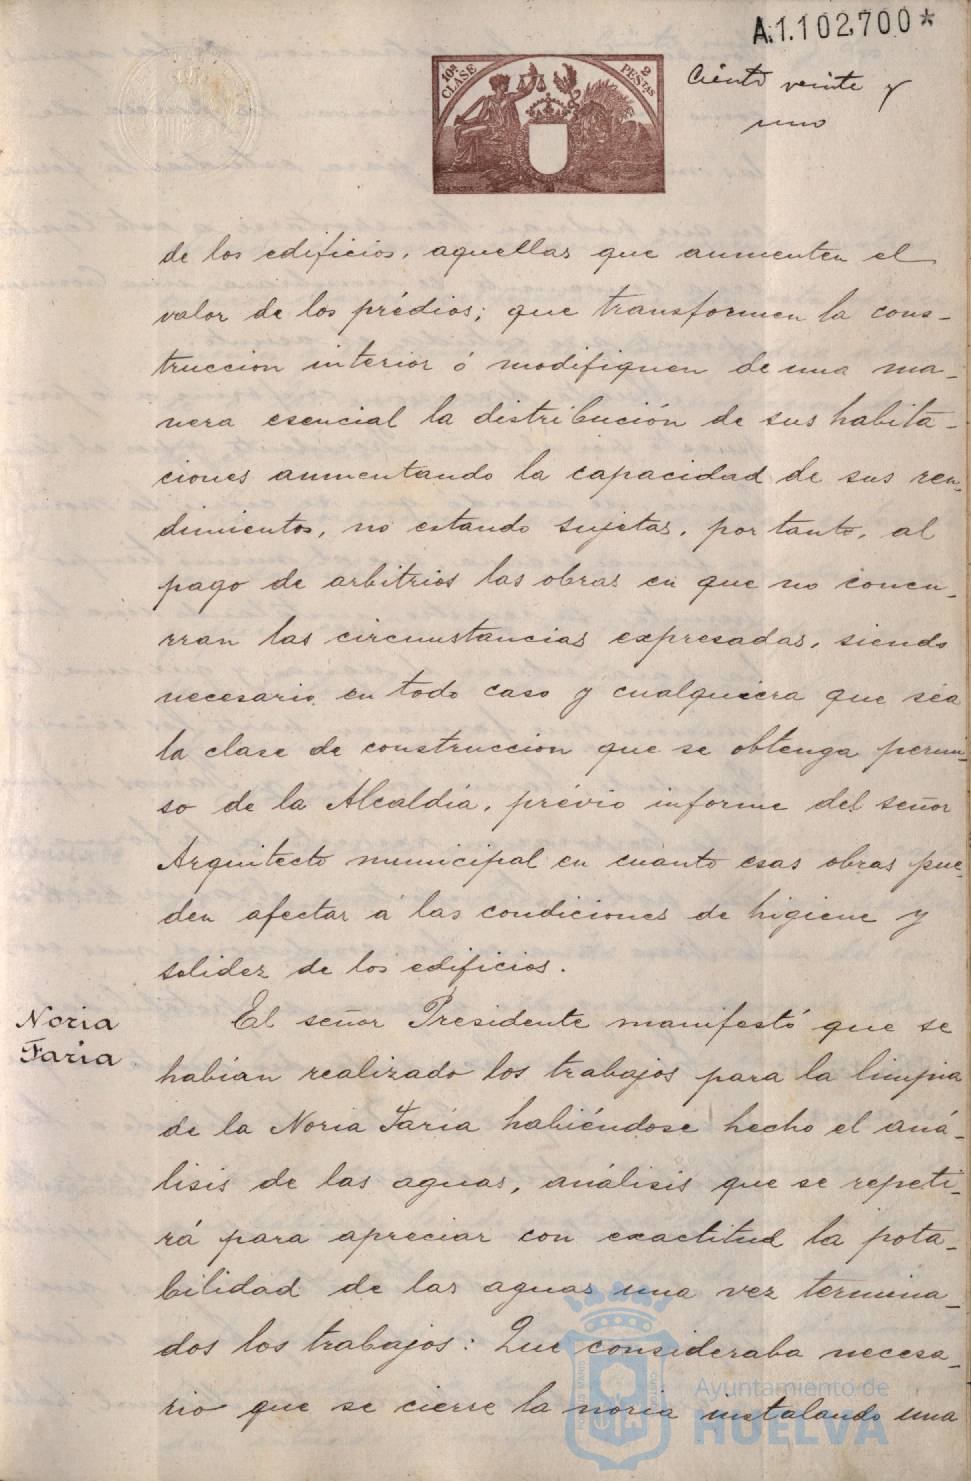 A.1.102,700*
10ª CLASE
2 PESTAS
Ciento veinte y
uno
de los edificios, aquellas que aumenten el
valor de los prédios; que transformen la cons-
truccion interior ó modifiquen de una ma-
nera esencial la distribución de sus habita-
ciones aumentando la capacidad de sus ren-
dimientos, no estando sujetas, por tanto, al
pago de arbitrios las obras en que no concu-
rran las circunstancias expresadas, siendo
necesario en todo caso y cualquiera que sea
la clase de construccion que se obtenga permi-
so de la Alcaldía, prévio informe del señor
Arquitecto municipal en cuanto esas obras pue-
den afectar á las condiciones de higiene y
solidez de los edificios.
Noria
Faria
El señor Presidente manifestó que se
habían realizado los trabajos para la limpia
de la Noria Faria habiéndose hecho el aná-
lisis de las aguas, análisis que se repeti-
rá para apreciar con exactitud la pota-
bilidad de las aguas una vez termina-
dos los trabajos: Que consideraba necesa-
rio que se cierre la noria instalando una
Ayuntamiento de
HUELVA